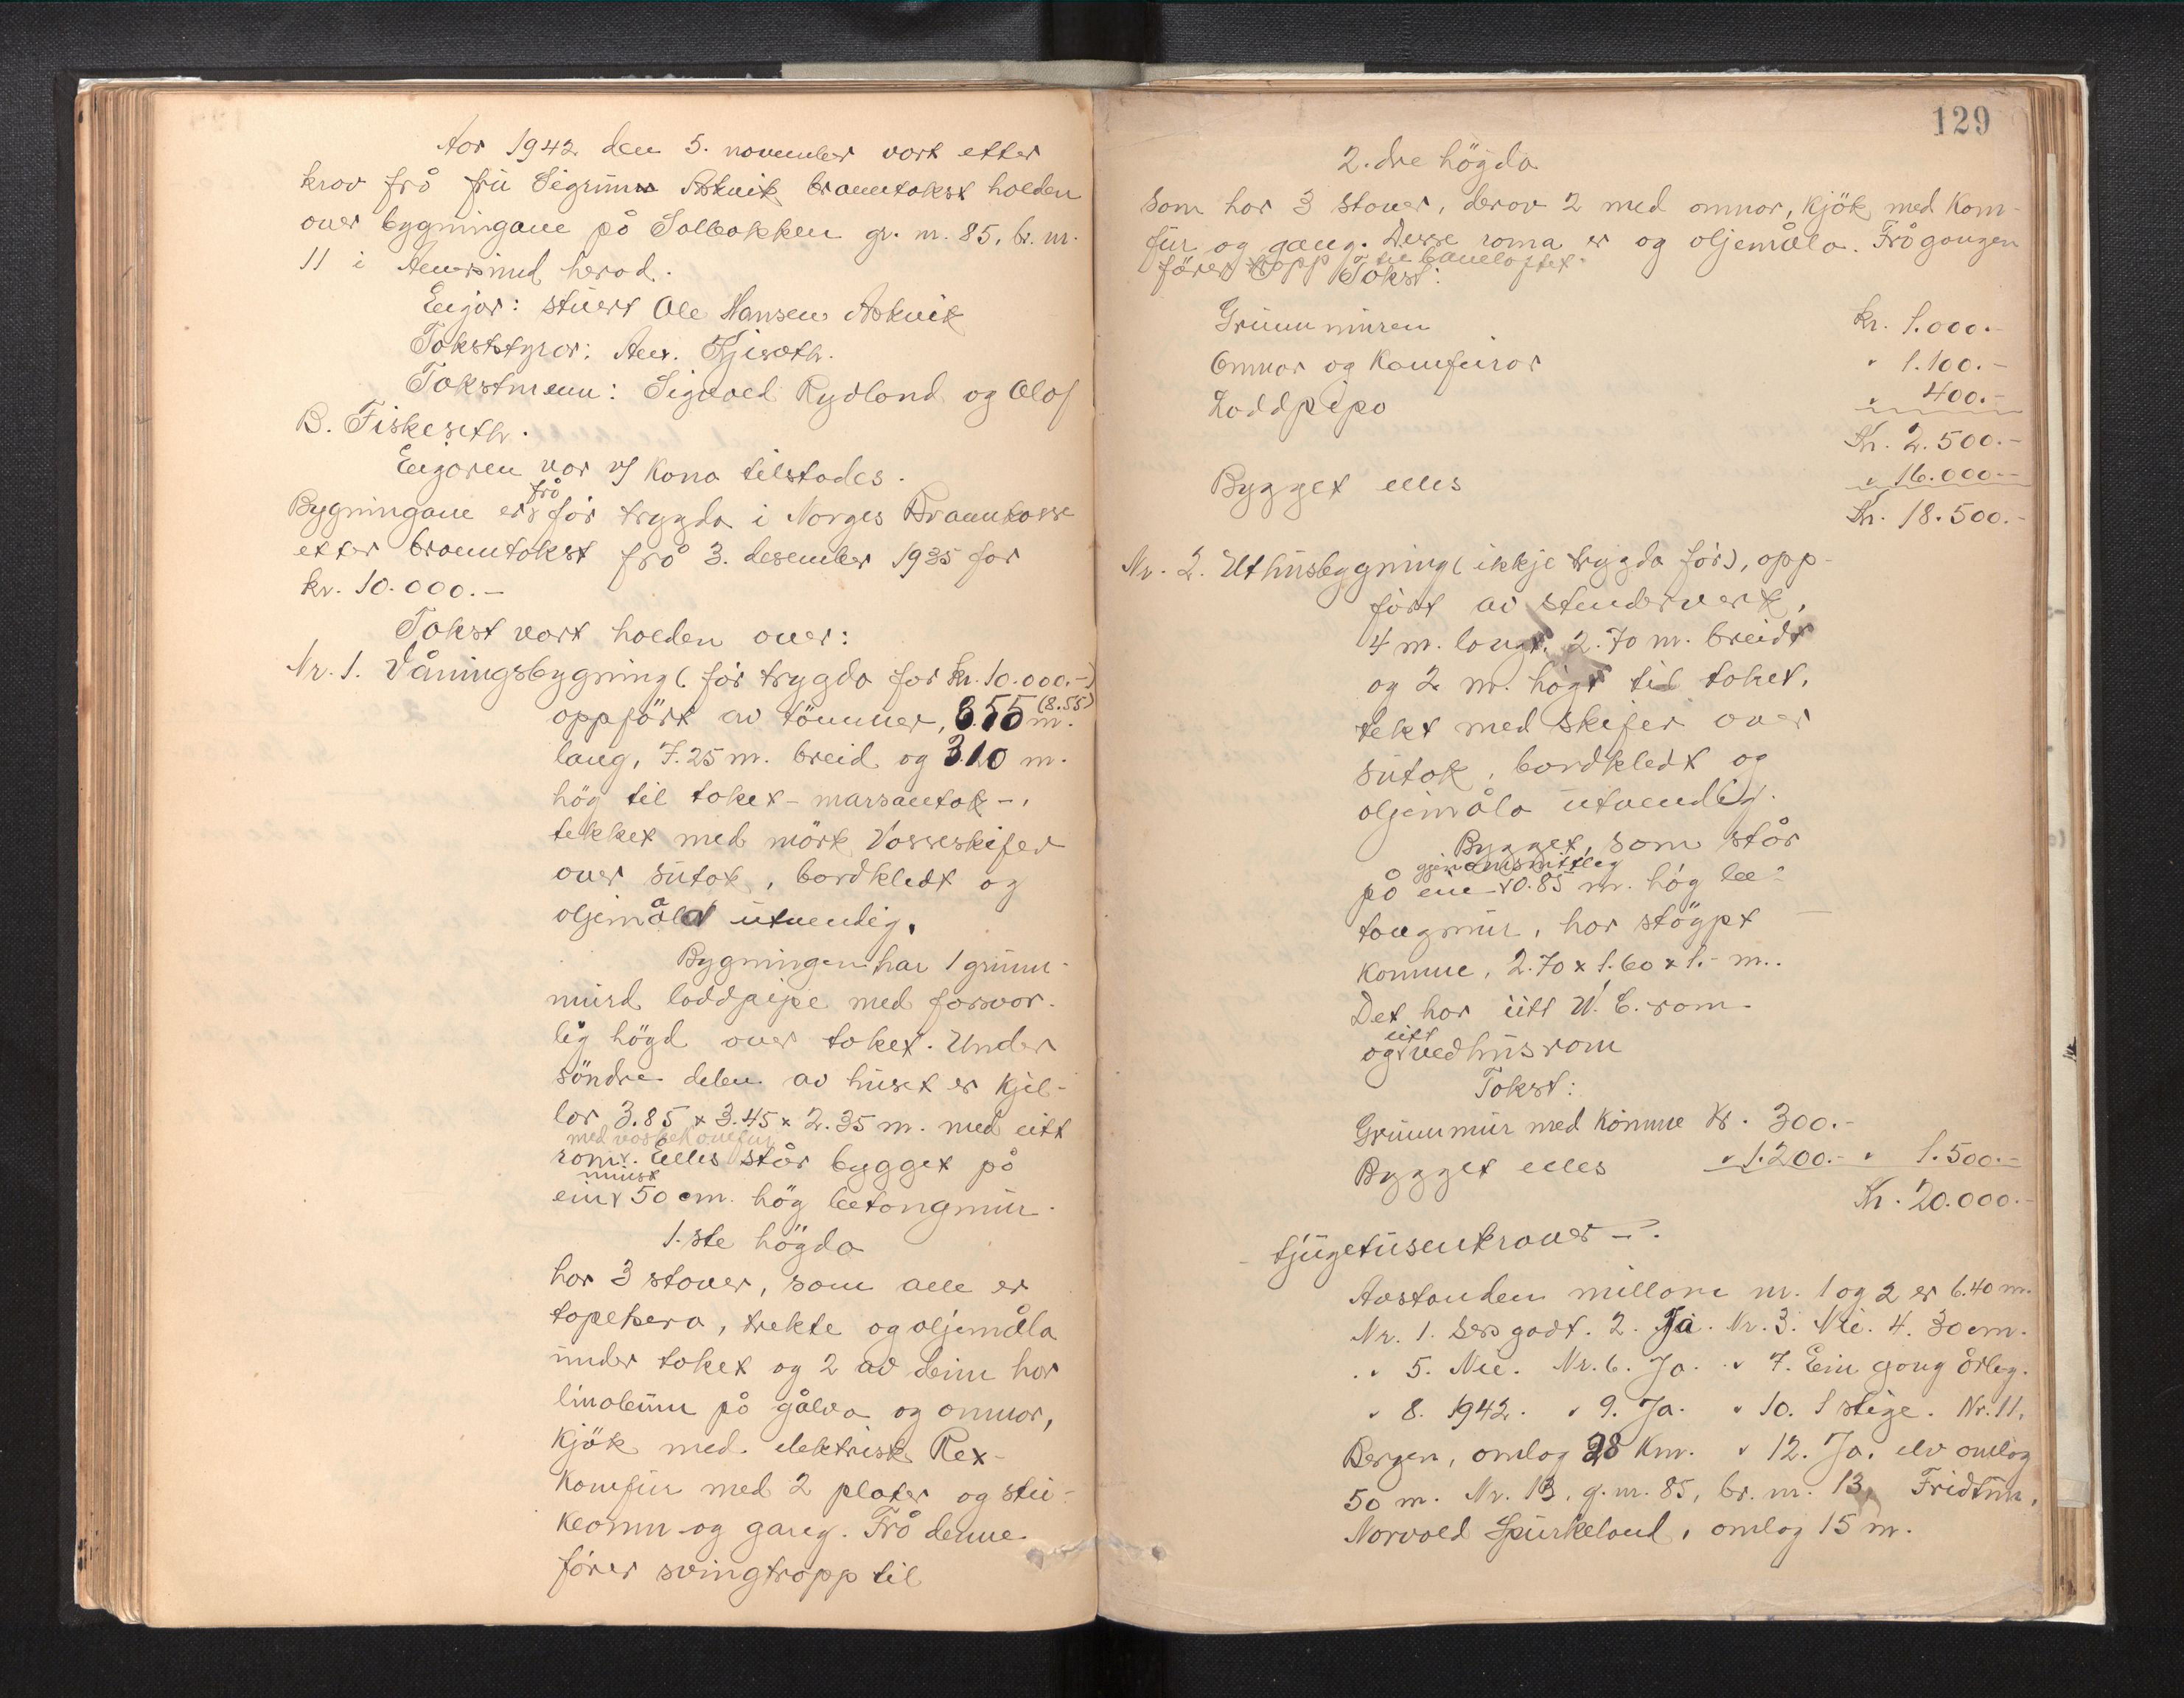 Aar 1942 den 5. november vart etter
krav frå frú Sigrunn Askvik branntakst halden
over bygningane på Solbakken gr. nr. 85, br. nr.
11 i Hamre herad.
Eigar: stuert Ole Hansen Askvik
Takststyrar: And.
Takstmenn: Sigvald Rydland og Olaf
B. Fiskeseth.
Eigaren var v/ kona tilstades.
Bygningane er frå før trygda i Norges Brannkasse
etter branntakst frå 3. desember 1935 for
kr. 10.000.-
Takst vart halden over:
Nr. 1. Våningsbygning (før trygda for kr. 10.000.-)
oppført av tømmer, 8.55 (8.55) m.
lang, 7.25 m. breid og 3.10 m.
høg til taket - marsantak -,
tekket med mörk Vosseskifer
over sutak, bordkledt og
oljemåla utvendig.
Bygningen har 1 grunn-
murd loddpipe med forsvar-
lig högd over taket. Under
söndre delen av huset er kjel-
lar 3.85 x 3.45 x 2.35 m. med eitt
rom. med vaskekomfur Elles står bygget på
ein minst 50 cm. høg betongmur.
1.ste högda
har 3 stover, som alle er
tapetsera, trekte og oljemåla
under taket og 2 av deim har
linoleum på gålva og omnar,
kjök med elektrisk Rex-
komfur med 2 plater og stei-
keomn og gang. Frå denne
förer svingtrapp til
129
2.dre högda
som har 3 stover, derav 2 med omnar, kjök med kom-
fur og gang. Desse roma er og oljemåla. Frå gangen
fører trapp til baneloftet.
Takst:
Grunnmuren kr. 1.000.-
Omnar og komfurar " 1.100.-
Loddpipa " 400.-
Kr. 2.500.-
Bygget elles " 16.000.-
Kr. 18.500.-
Nr. 2. Uthusbygning (ikkje trygda før), opp-
ført av stenderverk,
4 m. langt, 2.70 m. breidt
og 2 m. høgt til taket,
tekt med skifer over
sutak, bordkledt og
oljemåla utvendig.
Bygget, som står
på ein gjenomsnittleg 0.85 m. høg be-
tongmur, har støypt
komme, 2.70 x 1.60 x 1.- m..
Det har eitt W.C. rom
og eitt vedhusrom
Takst:
Grunnmur med komme kr. 300.-
Bygget elles " 1.200.- " 1.500.-
Kr. 20.000.-
tjugetusenkroner - .
Avstanden millom nr. 1 og 2 er 6.40 m.
Nr. 1. Sers godt. 2. Ja. Nr. 3. Nei. 4. 30 cm.
" 5. Nei. Nr. 6. Ja. " 7. Ein gong årleg.
" 8. 1942. " 9. Ja. " 10. 1 stige. Nr. 11.
Bergen, omlag 28 km. " 12. Ja, elv omlag
50 m. Nr. 13, g.nr. 85, br. nr. 13, Fridtun,
Norvald Spurkeland, omlag 15 m.